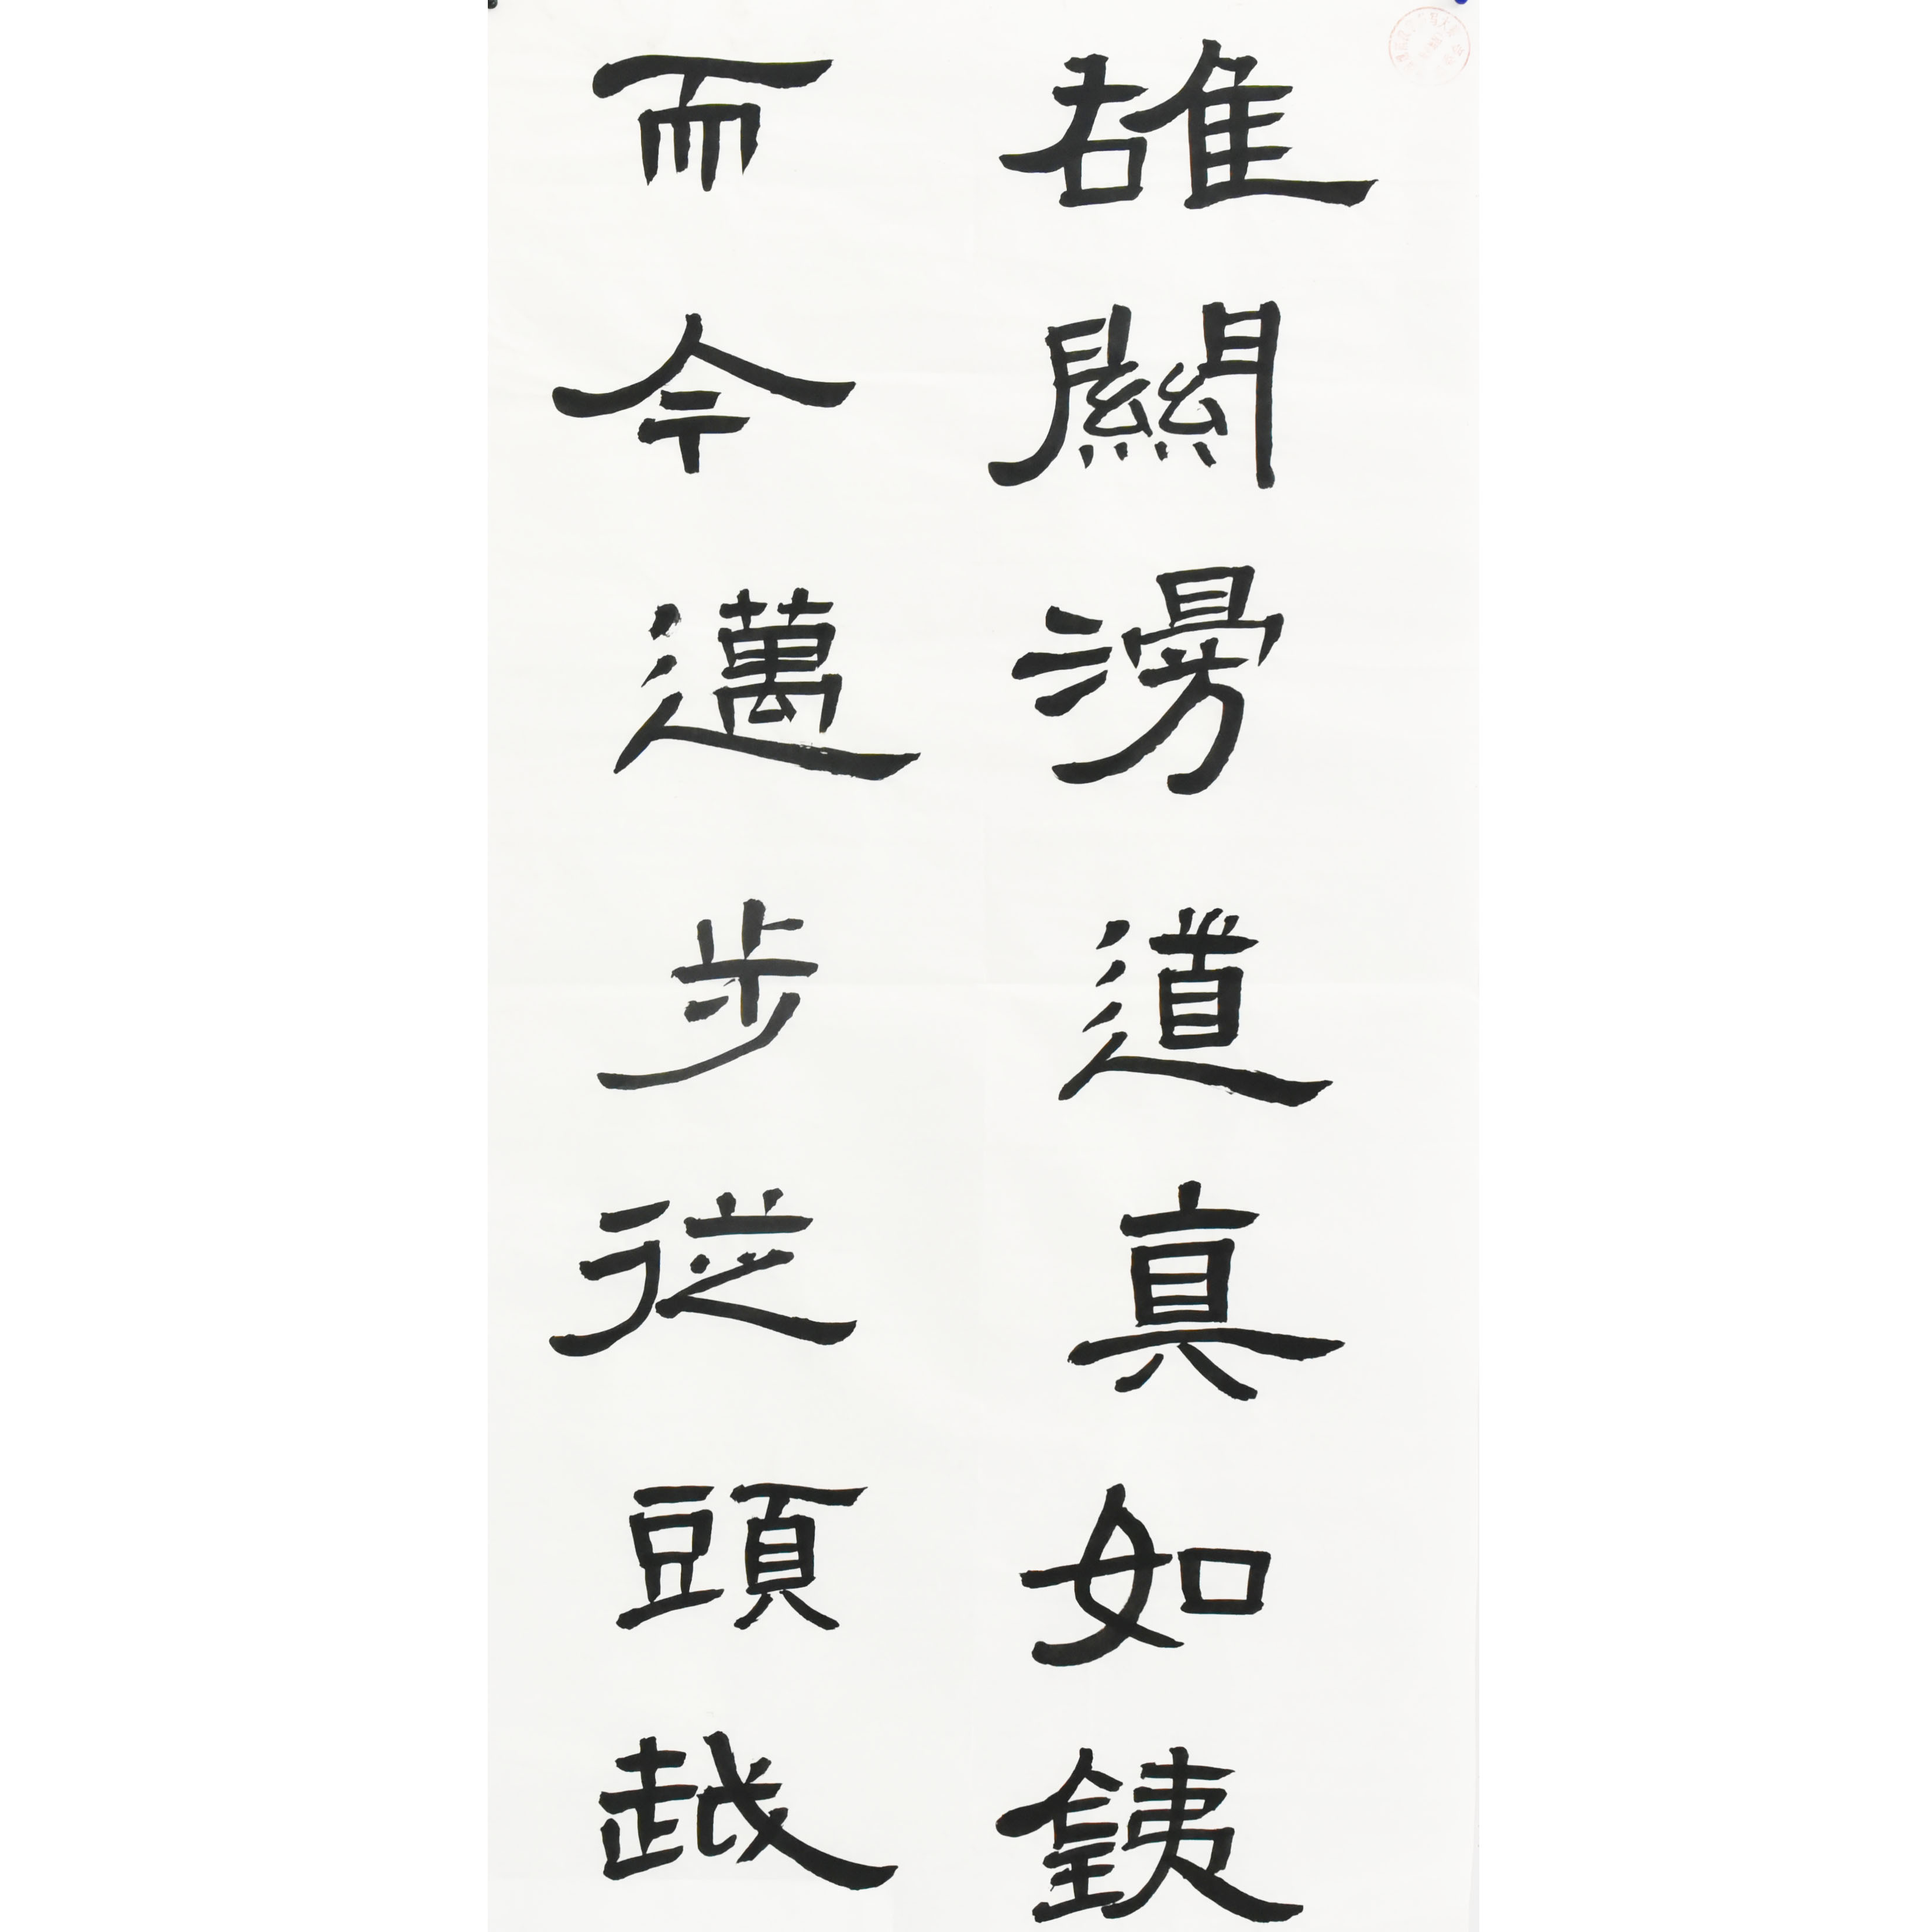 雄關漫道真如銕
而今邁步從頭越